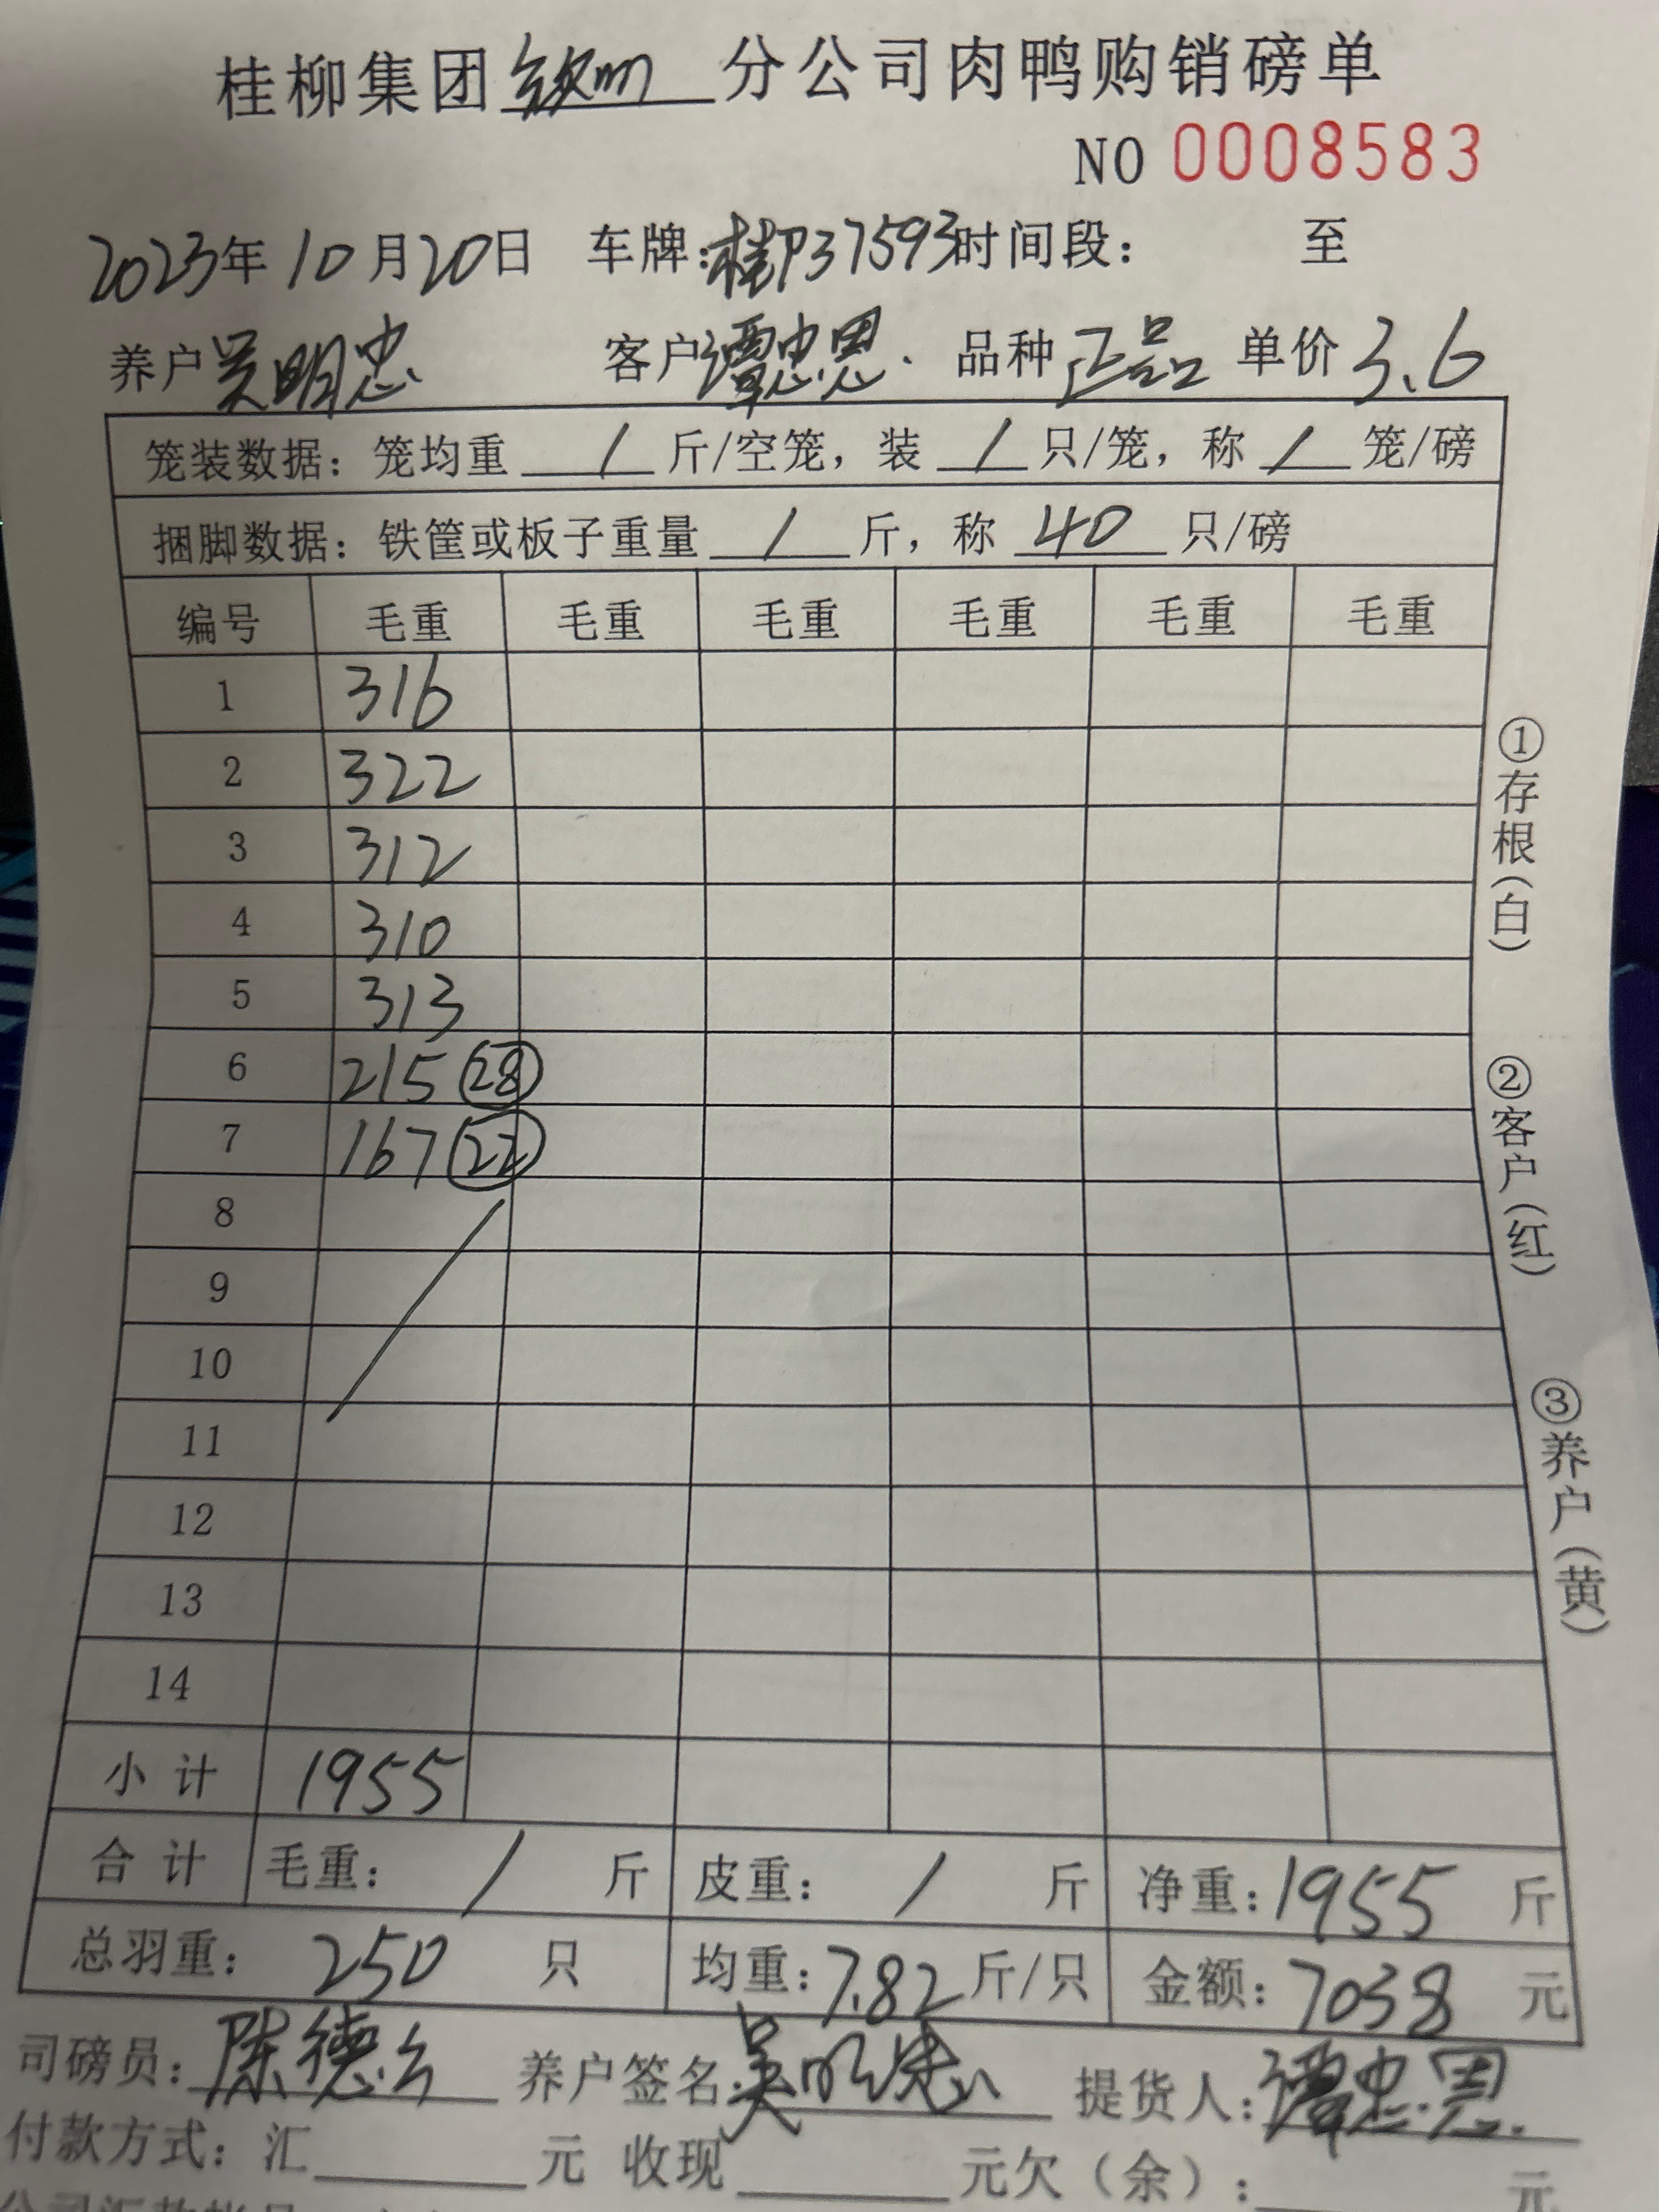 桂柳集团钦州分公司肉鸭购销磅单
NO 0008583
2023年10月20日 车牌:桂P37593时间段: 至
养户吴明忠 客户谭忠恩 品种正品 单价3.6
笼装数据: 笼均重 / 斤/空笼, 装 / 只/笼, 称 / 笼/磅
捆脚数据: 铁筐或板子重量 / 斤, 称 40 只/磅
编号 毛重 毛重 毛重 毛重 毛重 毛重
1 316
2 322
3 312
4 310
5 313
6 215 (28)
7 167 (22)
8
9
10
11
12
13
14
小计 1955
合计 毛重: / 斤 皮重: / 斤 净重:1955 斤
总羽重: 250 只 均重:7.82斤/只 金额:7038 元
司磅员:陈德 养户签名:吴明忠 提货人:谭忠恩
付款方式: 汇 元 收现 元欠(余): 元
①存根(白)
②客户(红)
③养户(黄)